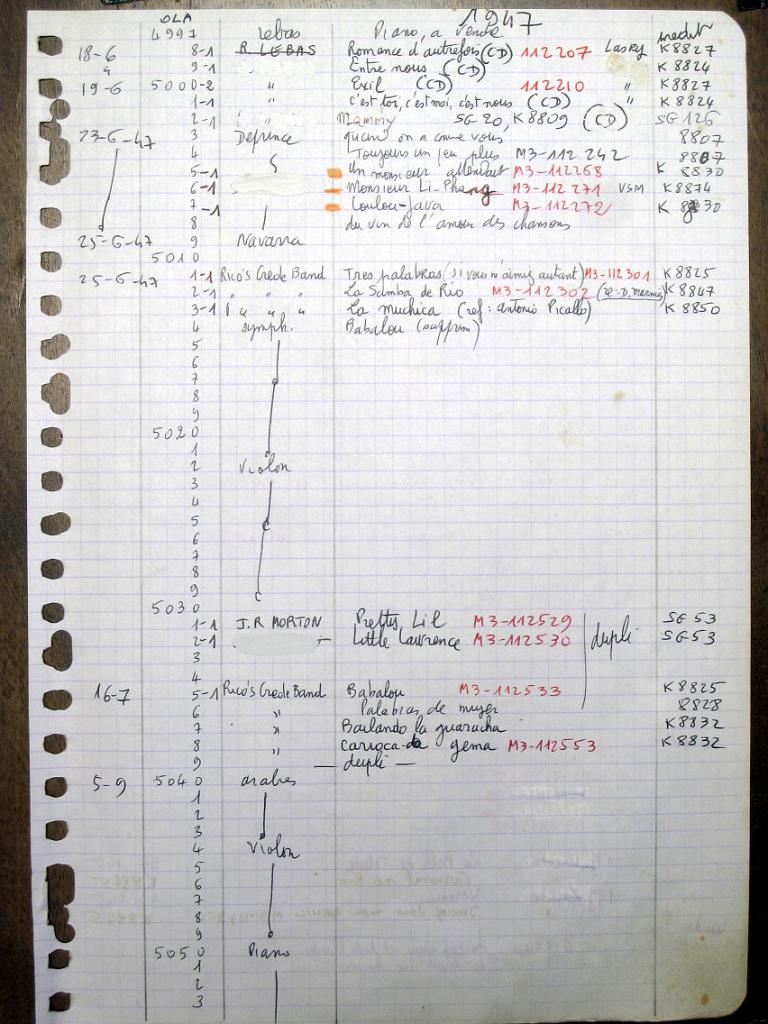 1947
OLA
4997 Lebas Piano, a Vendre inedit
18-6 8-1 R. LEBAS Romance d'autrefois (CD) 112207 Lasry K8827
" 9-1 Entre nous (CD) K8824
19-6 5000-2 " Exil (CD) 112210 " K8827
1-1 " c'est toi, c'est moi, c'est nous (CD) K8824
2-1 " " Mammy SG 20, K8809 (CD) SG 126
23-6-47 3 Deprince quand on a comme vous 8807
4 Toujours un peu plus M3-112 242 8807
5-1 Un monsieur attendait M3-112268 K 8830
6-1 Monsieur Li-Phang M3-112271 VSM K8874
7-1 Loulou-Java M3-112272 K 8830
8 du vin de l'amour des chansons
25-6-47 9 Navarra
5010
25-6-47 1-1 Rico's Creole Band Tres palabras (si vous m'aimiez autant) M3-112301 K8825
2-1 " " " La Samba de Rio M3-112302 K8847
3-1 " " " La muchica (ref: antonio Picallo) K 8850
4 symph. Babalou (supprim)
5
6
7
8
9
5020
1
2 Violon
3
4
5
6
7
8
9
5030
1-1 J.R MORTON Pretty Lil M3-112529 SG 53
2-1 — Little Lawrence M3-112530 dupli SG53
3
4
16-7 5-1 Rico's Creole Band Babalou M3-112533 K8825
6 " Palabras de mujer 8828
7 " Bailando la guaracha K8832
8 " Carioca da gema M3-112553 K8832
9 — dupli —
5-9 5040 arabes
1
2
3
4 Violon
5
6
7
8
9
5050 Piano
1
2
3